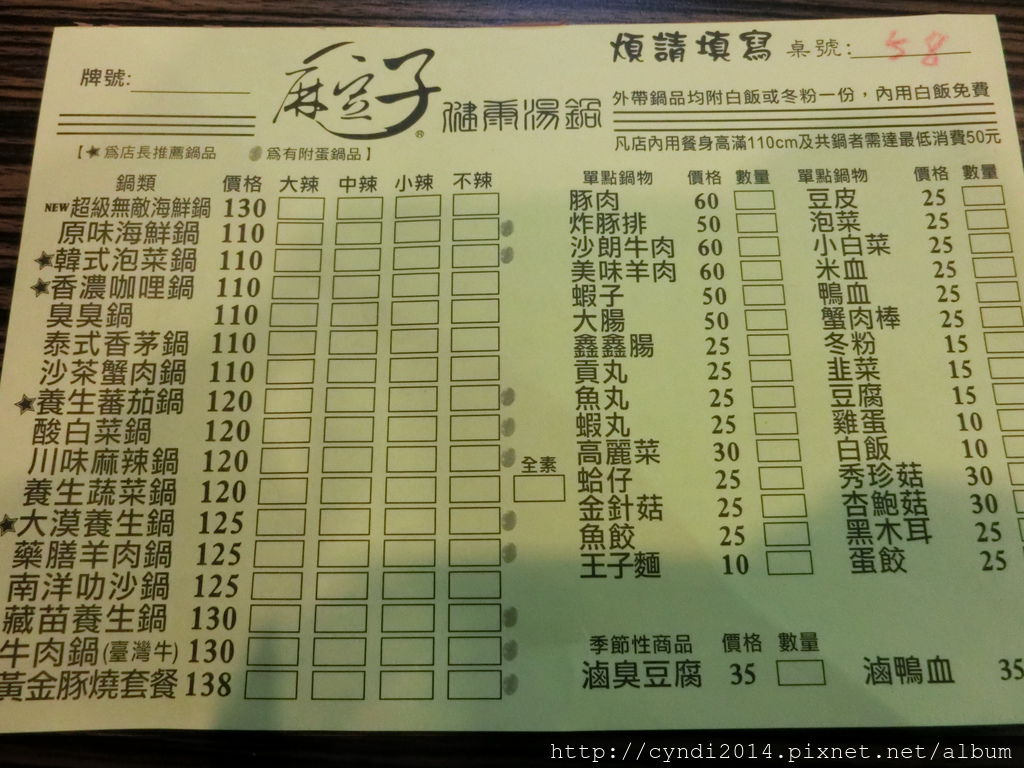 煩請填寫 桌號: 58
牌號:
麻豆子® 健康湯鍋
外帶鍋品均附白飯或冬粉一份，內用白飯免費
凡店內用餐身高滿110cm及共鍋者需達最低消費50元
【★為店長推薦鍋品 為有附蛋鍋品】
鍋類 價格 大辣 中辣 小辣 不辣
NEW超級無敵海鮮鍋 130
原味海鮮鍋 110
★韓式泡菜鍋 110
★香濃咖哩鍋 110
臭臭鍋 110
泰式香茅鍋 110
沙茶蟹肉鍋 110
★養生蕃茄鍋 120
酸白菜鍋 120
川味麻辣鍋 120
養生蔬菜鍋 120 全素
★大漠養生鍋 125
藥膳羊肉鍋 125
南洋叻沙鍋 125
藏苗養生鍋 130
牛肉鍋(臺灣牛) 130
黃金豚燒套餐 138
單點鍋物 價格 數量
豚肉 60
炸豚排 50
沙朗牛肉 60
美味羊肉 60
蝦子 50
大腸 50
鑫鑫腸 25
貢丸 25
魚丸 25
蝦丸 25
高麗菜 30
蛤仔 25
金針菇 25
魚餃 25
王子麵 10
單點鍋物 價格 數量
豆皮 25
泡菜 25
小白菜 25
米血 25
鴨血 25
蟹肉棒 25
冬粉 15
韭菜 15
豆腐 15
雞蛋 10
白飯 10
秀珍菇 30
杏鮑菇 30
黑木耳 25
蛋餃 25
季節性商品 價格 數量
滷臭豆腐 35
滷鴨血 35
http://cyndi2014.pixnet.net/album